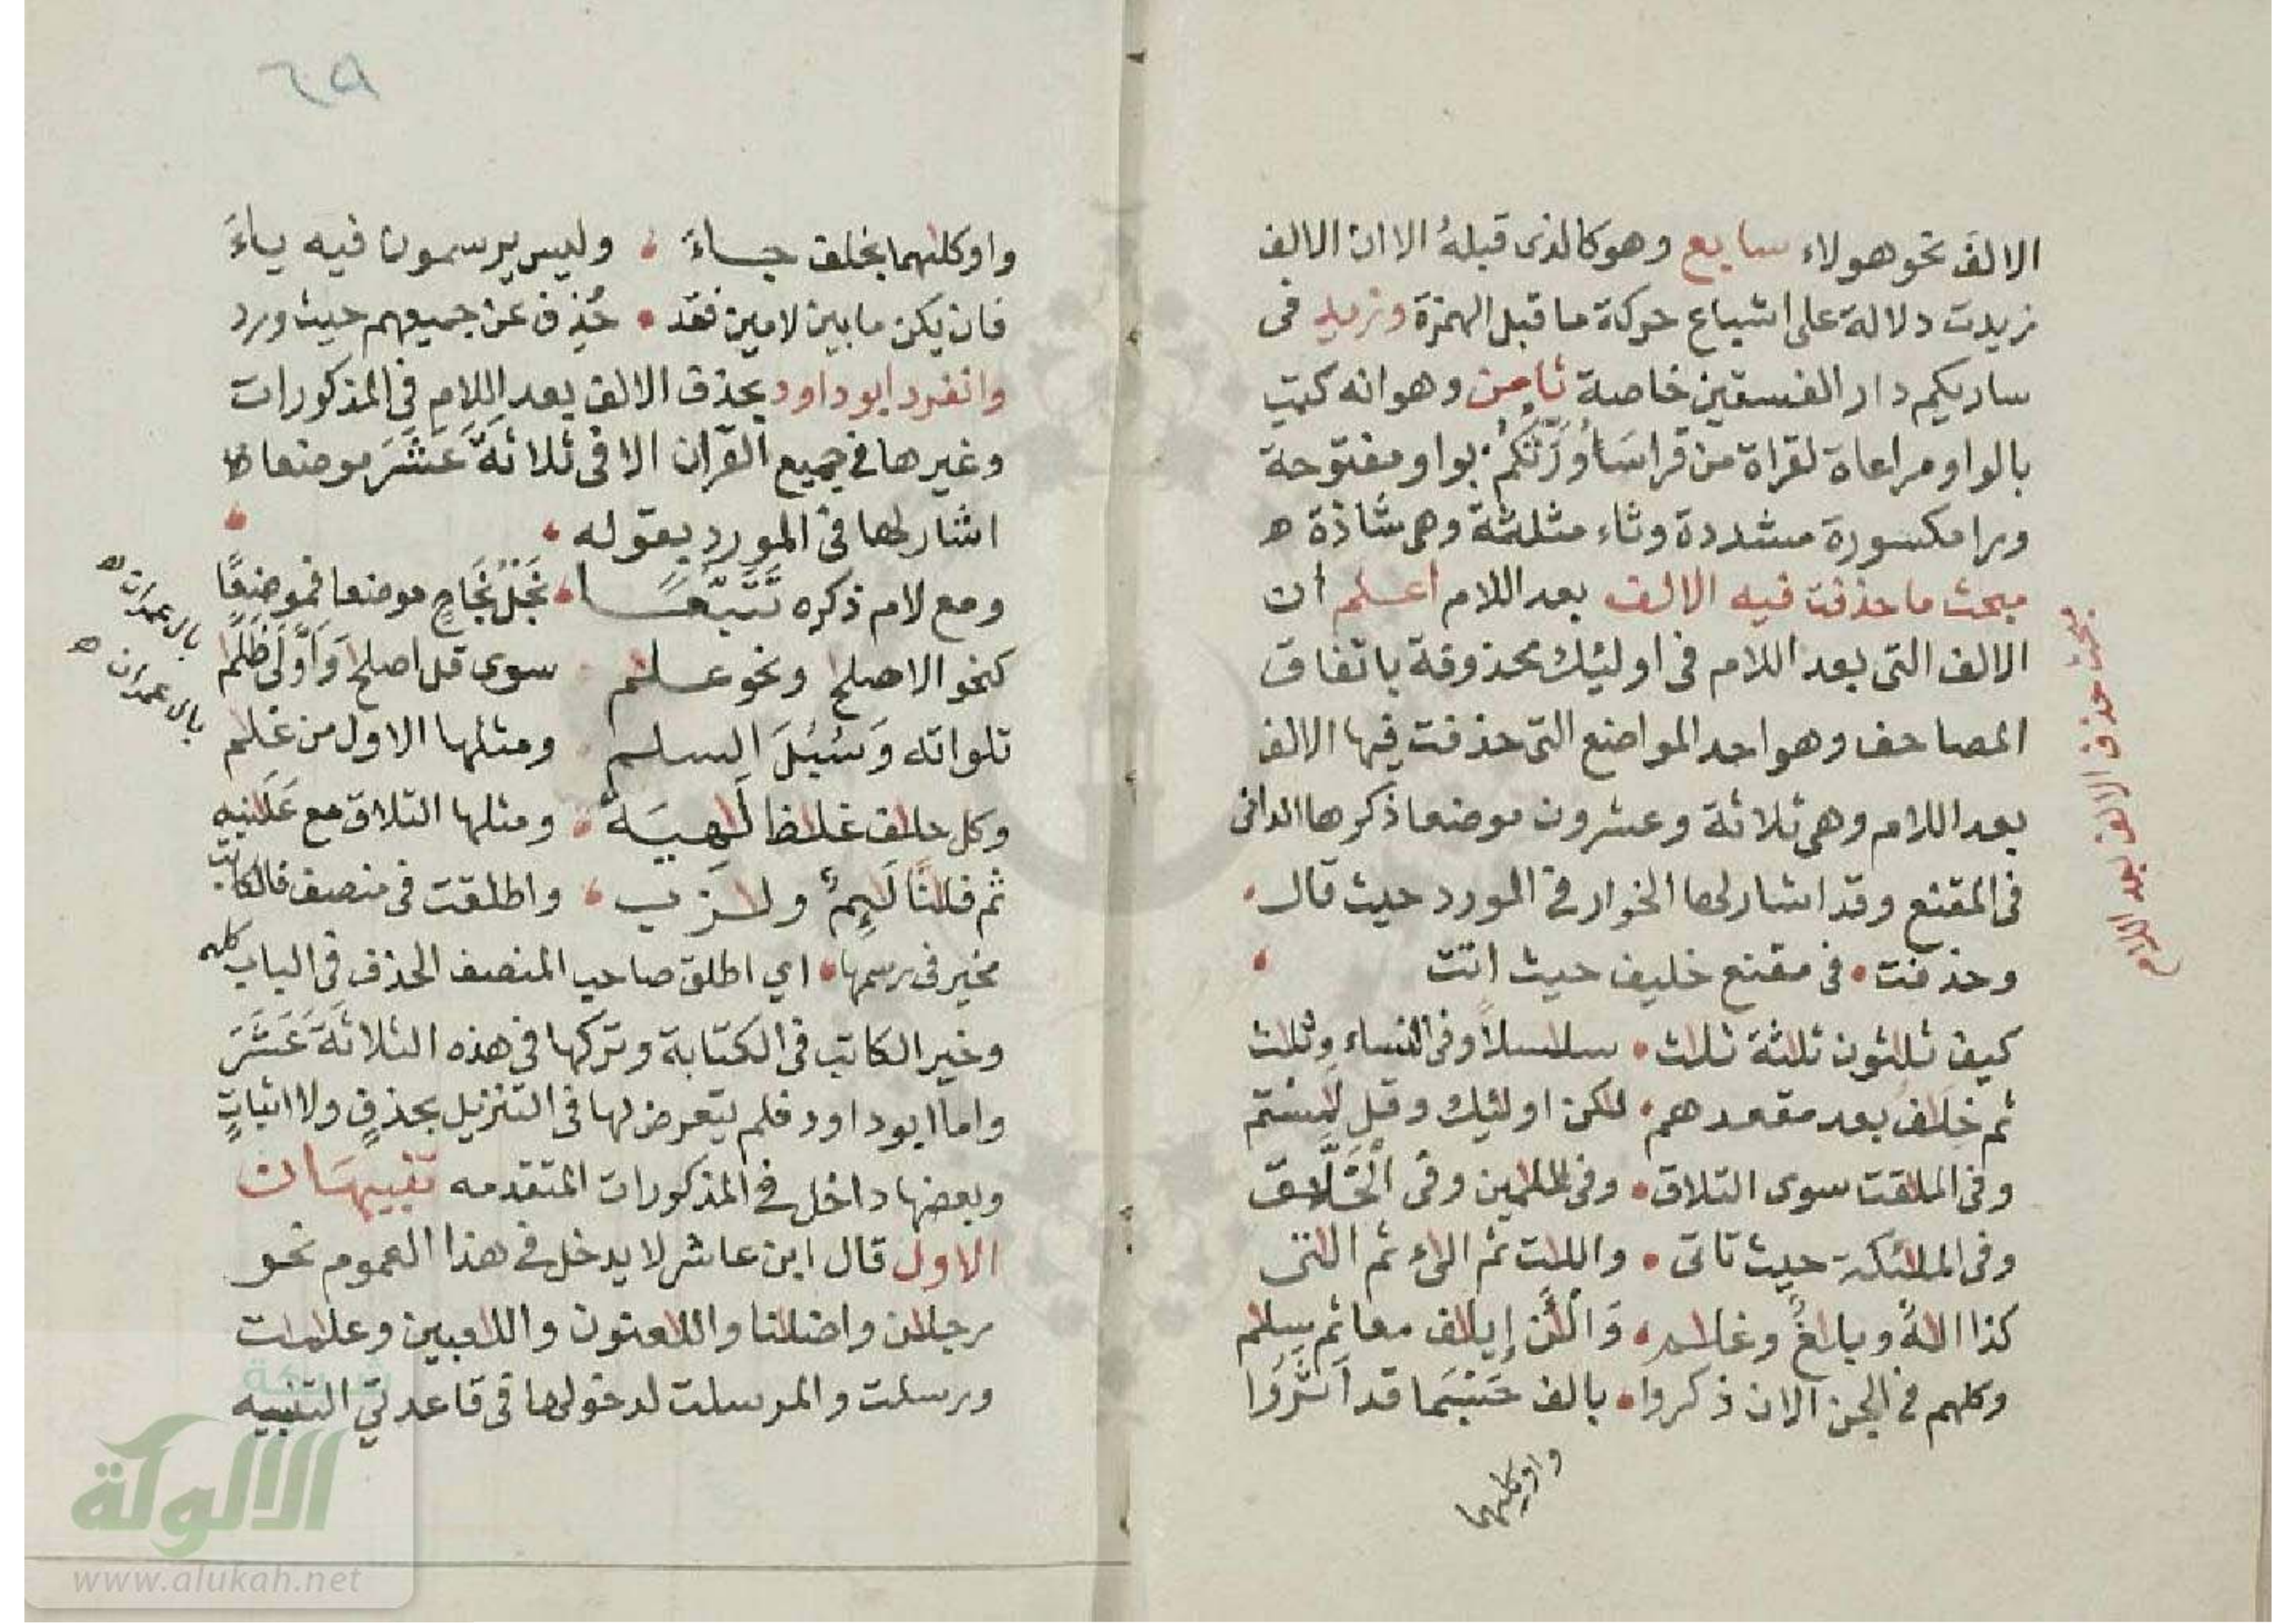 الالف نحو هولاء سابع وهو كالذى قبلهُ الا ان الالف
زيدت دلالة على اشباع حركة ما قبل الهمزة وزيد فى
ساريكم دار الفسقين خاصة ثامن وهو انه كتبت
بالواو مراعاة لقراة من قرا سَأُوَرِّثُكُمْ بواو مفتوحة
ورا مكسورة مشددة وثاء مثلثة وهى شاذة ه
مبحث ما حذفت فيه الالف بعد اللام اعلم ان
الالف التى بعد اللام فى اوليئك محذوفة باتفاق
المصاحف وهو احد المواضع التى حذفت فيها الالف
بعد اللام وهى ثلاثة وعشرون موضعا ذكرها الدانى
فى المقنع وقد اشار لها الخراز فى المورد حيث قال
وحذفت فى مقنع خليف حيث اتت
كيف ثلثون ثلثة ثلث سلسلاً وفى النساء وثلث
ثم خلف بعد مقعدهم لكن اولئك وقل لمستم
وفى الملقت سوى التلاق وفى الملمين وفى الْخَلَّاق
وفى الملئكة حيث تاتى واللت ثم الئ ثم التى
كذا اللهُ وبلغٌ وغلم وَالْئن إيلف معا ثم سلم
وكلهم فى الجن الان ذكروا بالف حَسْبَمَا قد اَثَّرُوا
واوكليهما
مبحث حذف الالف بعد اللام
٦٩
واوكلهما بخلف جاءَ وليس يرسمون فيه ياءَ
فان يكن ما بين لامين فقد حُذِف عن جميعهم حيث ورد
وانفرد ابو داود بحذف الالف بعد اللام فى المذكورات
وغيرها فى جميع القرآن الا فى ثلاثَةَ عَشَرَ موضعا
اشار لها فى المورد بقوله
ومع لام ذكره تَتَبَّعَا نَجْلُ نَجَاحٍ موضعا فموضعًا
كنحو الاصلح ونحو علم سوى قل اصلح وَاَوْلَى ظلم
تلواته وَسُبُلَ السلم ومثلها الاول من غلم
وكل حلف غلاظ لَهِيَةً ومثلها التلاق مع عَلَنيه
ثم فلنا لَئِمٌ ولزب واطلقت فى منصف فالكاتب
مخير فى رسمها اي اطلق صاحب المنصف الحذف فى الباب كله
وخير الكاتب فى الكتابة وتركها فى هذه الثلاثَةَ عَشَرَ
واما ابو داود فلم يتعرض لها فى التنزيل بحذفٍ ولا اثباتٍ
وبعضها داخل فى المذكورات المتقدمه تنبيهَان
الاول قال ابن عاشر لا يدخل فى هذا العموم نحو
رجلان واضلنا واللعنون واللعبين وعلمات
ورسلت والمرسلت لدخولها فى قاعدتي التثنيه
بال عمران
بال عمران
شبكة
الألوكة
www.alukah.net